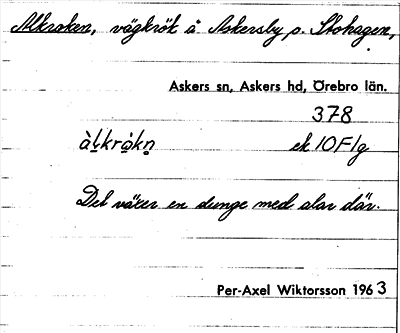 Alkroken, vägkrök å Askersby o. Skohagen,
Askers sn, Askers hd, Örebro län.
378
àl̠krȧkn̥ ek 10F1g
Det växer en dunge med alar där.
Per-Axel Wiktorsson 1963